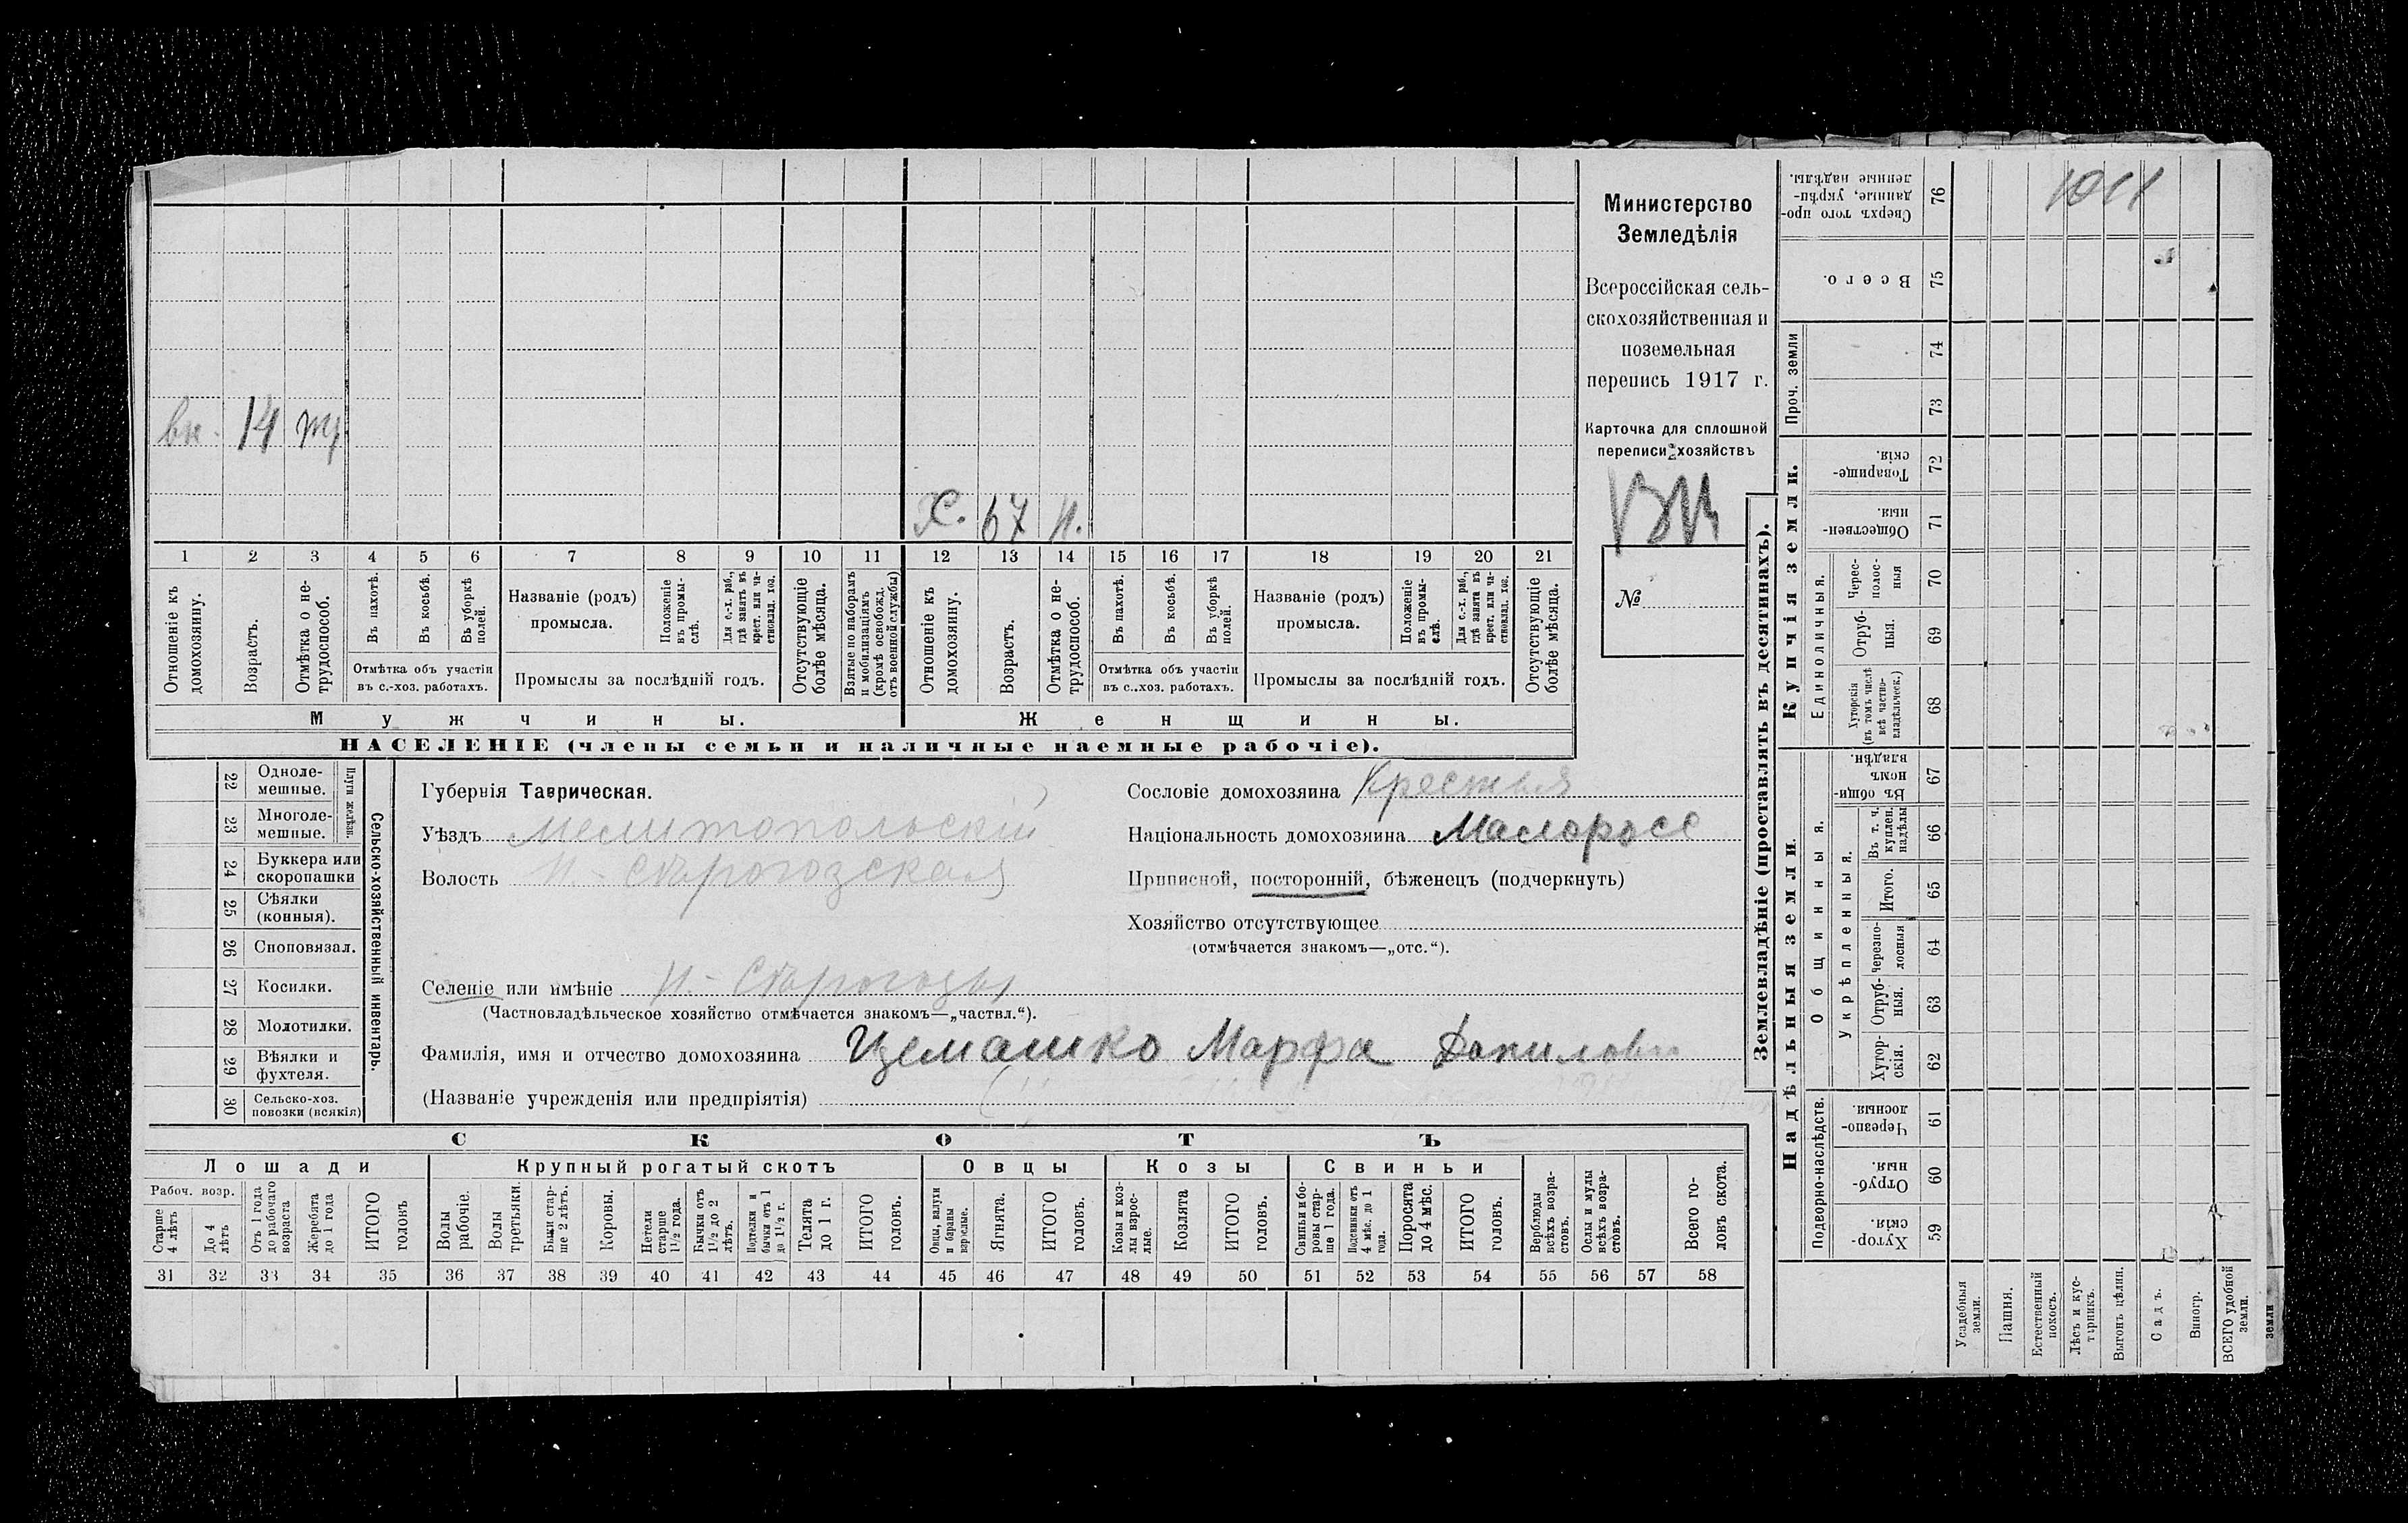 вн. 14 тр.
Х. 67 н.
1 2 3 4 5 6 7 8 9 10 11 12 13 14 15 16 17 18 19 20 21
Отношеніе къ домохозяину.
Возрастъ.
Отмѣтка о не-трудоспособ.
Въ пахотѣ.
Въ косьбѣ.
Въ уборкѣ полей.
Названіе (родъ)
промысла.
Положеніе въ промы-слѣ.
Для с.-х. раб., гдѣ занятъ въ крест. или ча-стновлад. хоз.
Отсутствующіе болѣе мѣсяца.
Взятые по наборамъ и мобилизаціямъ (кромѣ освобожд. отъ военной службы)
Отношеніе къ домохозяину.
Возрастъ.
Отмѣтка о не-трудоспособ.
Въ пахотѣ.
Въ косьбѣ.
Въ уборкѣ полей.
Названіе (родъ)
промысла.
Положеніе въ промы-слѣ.
Для с.-х. раб., гдѣ занята въ крест. или ча-стновлад. хоз.
Отсутствующіе болѣе мѣсяца.
Отмѣтка объ участіи
въ с.-хоз. работахъ.
Промыслы за послѣдній годъ.
Отмѣтка объ участіи
въ с.-хоз. работахъ.
Промыслы за послѣдній годъ.
Мужчины. Женщины.
НАСЕЛЕНІЕ (члены семьи и наличные наемные рабочіе).
Министерство
Земледѣлія
Всероссійская сель-
скохозяйственная и
поземельная
перепись 1917 г.
Карточка для сплошной
переписи хозяйствъ
№
22 Одноле-
мешные.
23 Многоле-
мешные.
Плуги желѣзн.
24 Буккера или
скоропашки
25 Сѣялки
(конныя).
26 Сноповязал.
27 Косилки.
28 Молотилки.
29 Вѣялки и
фухтеля.
30 Сельско-хоз.
повозки (всякія)
Сельско-хозяйственный инвентарь.
Губернія Таврическая.
Уѣздъ Мелитопольскій
Волость Н-Сѣрогозская
Селеніе или имѣніе Н-Сѣрогозы
(Частновладѣльческое хозяйство отмѣчается знакомъ—„частвл.“).
Фамилія, имя и отчество домохозяина Цемашко Марфа Данилов
(Названіе учрежденія или предпріятія)
Сословіе домохозяина
Національность домохозяина Малоросс
Приписной, посторонній, бѣженецъ (подчеркнуть)
Хозяйство отсутствующее
(отмѣчается знакомъ—„отс.“).
СКОТЪ
Лошади Крупный рогатый скотъ Овцы Козы Свиньи
Рабоч. возр.
Старше 4 лѣтъ
До 4 лѣтъ
Отъ 1 года до рабочаго возраста
Жеребята до 1 года
ИТОГО головъ
Волы рабочіе.
Волы третьяки.
Быки стар-ше 2 лѣтъ.
Коровы.
Нетели старше 1½ года.
Бычки отъ 1½ до 2 лѣтъ.
Подтелки и бычки отъ 1 до 1½ г.
Телята до 1 г.
ИТОГО головъ.
Овцы, валухи и бараны взрослые.
Ягнята.
ИТОГО головъ.
Козы и коз-лы взрос-лые.
Козлята
ИТОГО головъ.
Свиньи и бо-ровы стар-ше 1 года.
Подсвинки отъ 4 мѣс. до 1 года.
Поросята до 4 мѣс.
ИТОГО головъ.
Верблюды всѣхъ возра-стовъ.
Ослы и мулы всѣхъ возра-стовъ.
Всего го-ловъ скота.
31 32 33 34 35 36 37 38 39 40 41 42 43 44 45 46 47 48 49 50 51 52 53 54 55 56 57 58
Землевладѣніе (проставлять въ десятинахъ).
Надѣльныя земли. Купчія земли.
Проч. земли
Подворно-наслѣдств.
Общинныя.
Укрѣпленныя.
Единоличныя.
Сверхъ того про-данные, укрѣп-ленные надѣлы. 76
Всего. 75
74
73
Товарище-скія. 72
Обществен-ныя. 71
Черес-полос-ныя 70
Отруб-ныя. 69
Хуторскія (въ томъ числѣ всѣ частно-владѣльческ.) 68
Въ общи-номъ владѣн. 67
Въ т. ч. куплен. надѣлы 66
Итого. 65
Черезпо-лосныя 64
Отруб-ныя. 63
Хутор-скія. 62
Черезпо-лосныя. 61
Отруб-ныя. 60
Хутор-скія. 59
Усадебныя земли.
Пашня.
Естественный покосъ.
Лѣсъ и кус-тарникъ.
Выгонъ цѣлин.
Садъ.
Виногр.
ВСЕГО удобной земли.
земли
1011